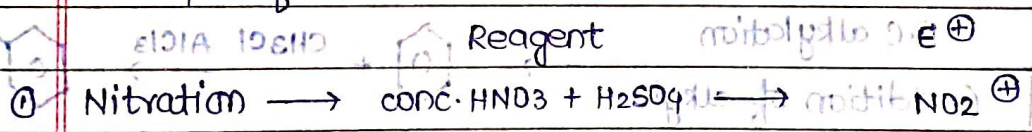 Reagent E⊕
① Nitration ⟶ conc. HNO3 + H2SO4 ⟶ NO2⊕